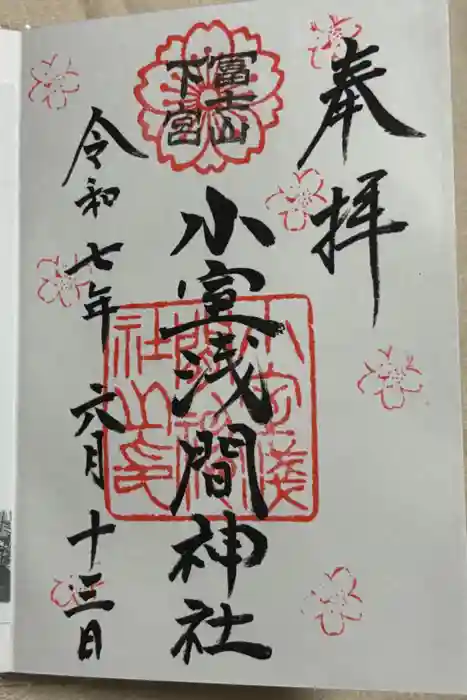 奉拝
富士山
下宮
小室浅間神社
令和七年六月十三日